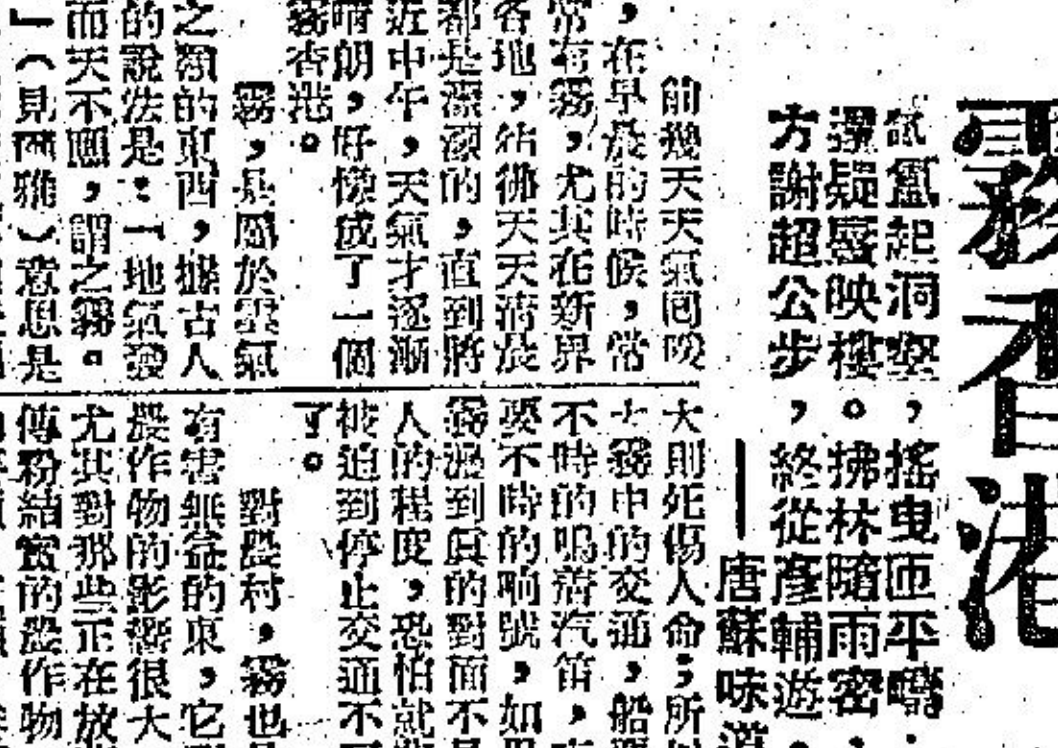 霧香港
氤氳起洞壑，搖曳匝平疇。
還疑蜃映樓。拂林隨雨密，
方謝超公步，終從彥輔遊。
——唐蘇味道
前幾天天氣回暖
，在早晨的時候，常
常有霧，尤其在新界
各地，彷彿天天清晨
都是濛濛的，直到將
近中午，天氣才逐漸
晴朗，好像成了一個
霧香港。
霧，是屬於雲氣
之類的東西，據古人
的說法是：「地氣發
而天不應，謂之霧。
」（見爾雅）意思是
大則死傷人命；所
大霧中的交通，船
不時的鳴着汽笛，
要不時的响號，如
霧濕到真的對面不
人的程度，恐怕就
被迫到停止交通不
了。
對農村，霧也
有害無益的東，它
農作物的影響很大
尤其對那些正在放
傳粉結實的農作物